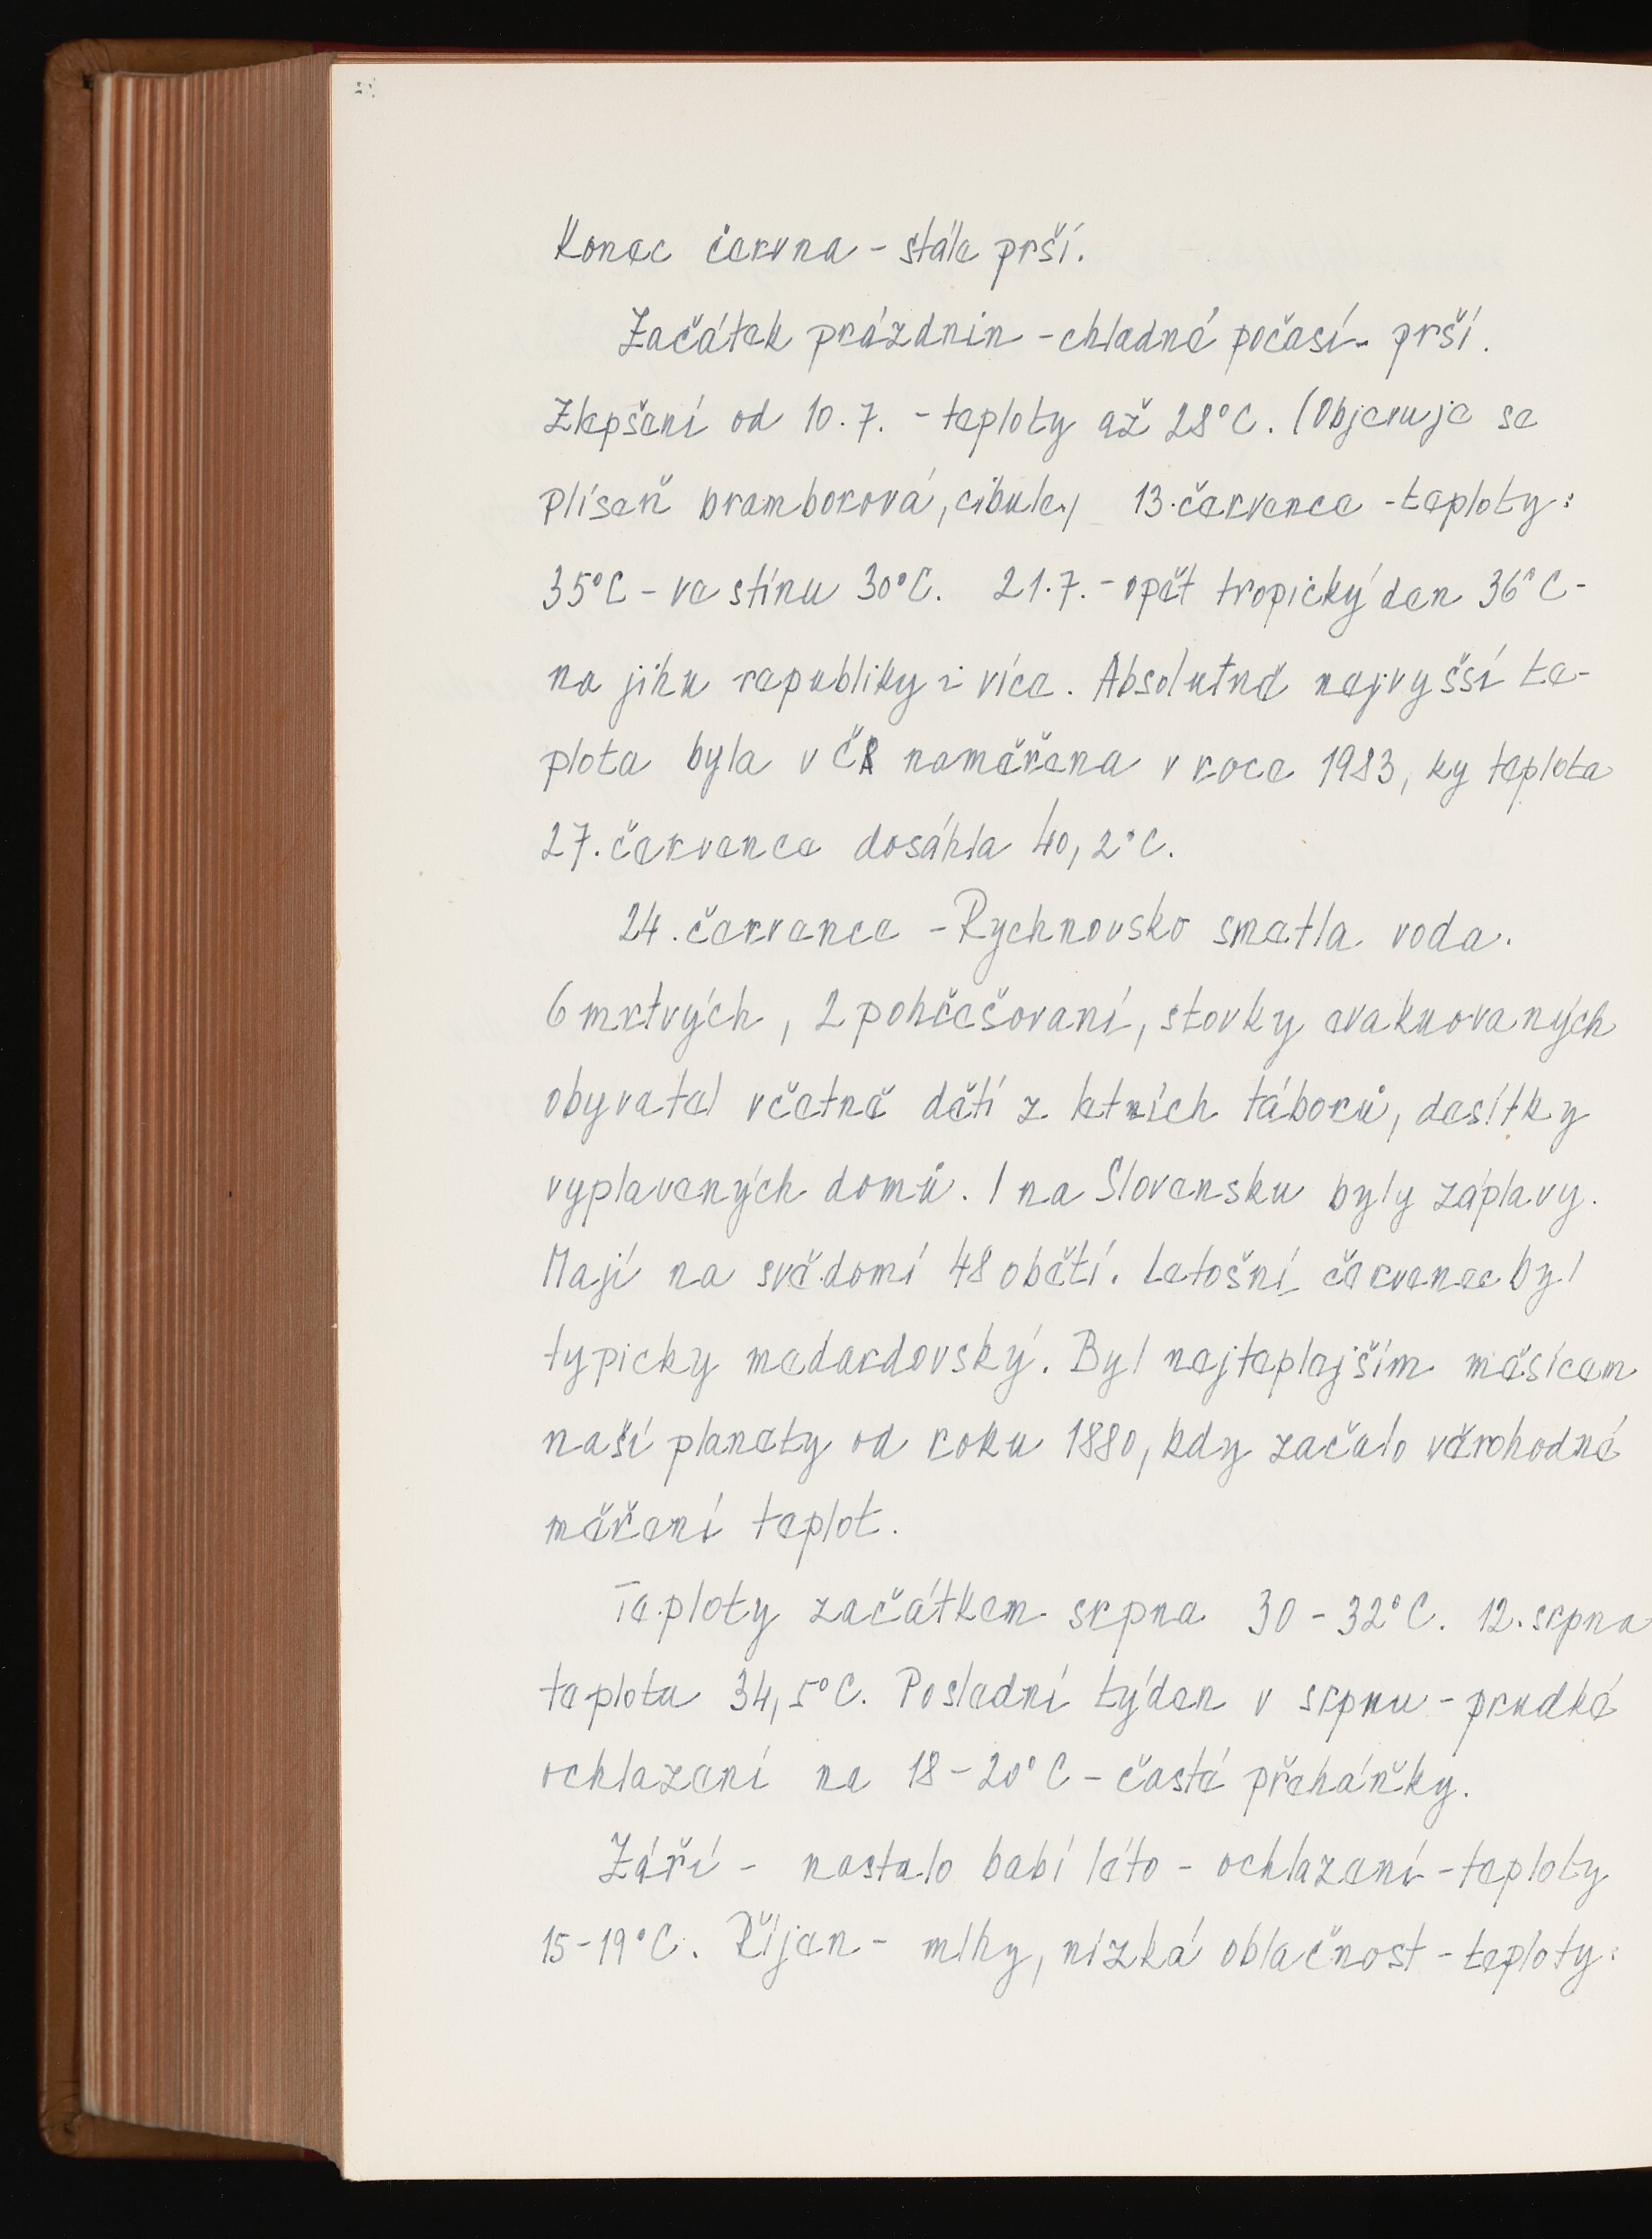 Konec června - stále prší.
Začátek prázdnin - chladné počasí - prší.
Zlepšení od 10. 7. - teploty až 28°C. (Objevuje se
plíseň bramborová, cibule.) 13. července - teploty:
35°C - ve stínu 30°C. 21. 7. - opět tropický den 36°C -
na jihu republiky i více. Absolutně nejvyšší te-
plota byla v ČR naměřena v roce 1983, ky teplota
27. července dosáhla 40,2°C.
24. července - Rychnovsko smetla voda.
6 mrtvých, 2 pohřešovaní, stovky evakuovaných
obyvatel včetně dětí z letních táborů, desítky
vyplavených domů. I na Slovensku byly záplavy.
Mají na svědomí 48 obětí. Letošní červenec byl
typicky medardovský. Byl nejteplejším měsícem
naší planety od roku 1880, kdy začalo věrohodné
měření teplot.
Teploty začátkem srpna 30 - 32°C. 12. srpna
teplota 34,5°C. Poslední týden v srpnu - prudké
ochlazení na 18 - 20°C - časté přeháňky.
Září - nastalo babí léto - ochlazení - teploty
15 - 19°C. Říjen - mlhy, nízká oblačnost - teploty: